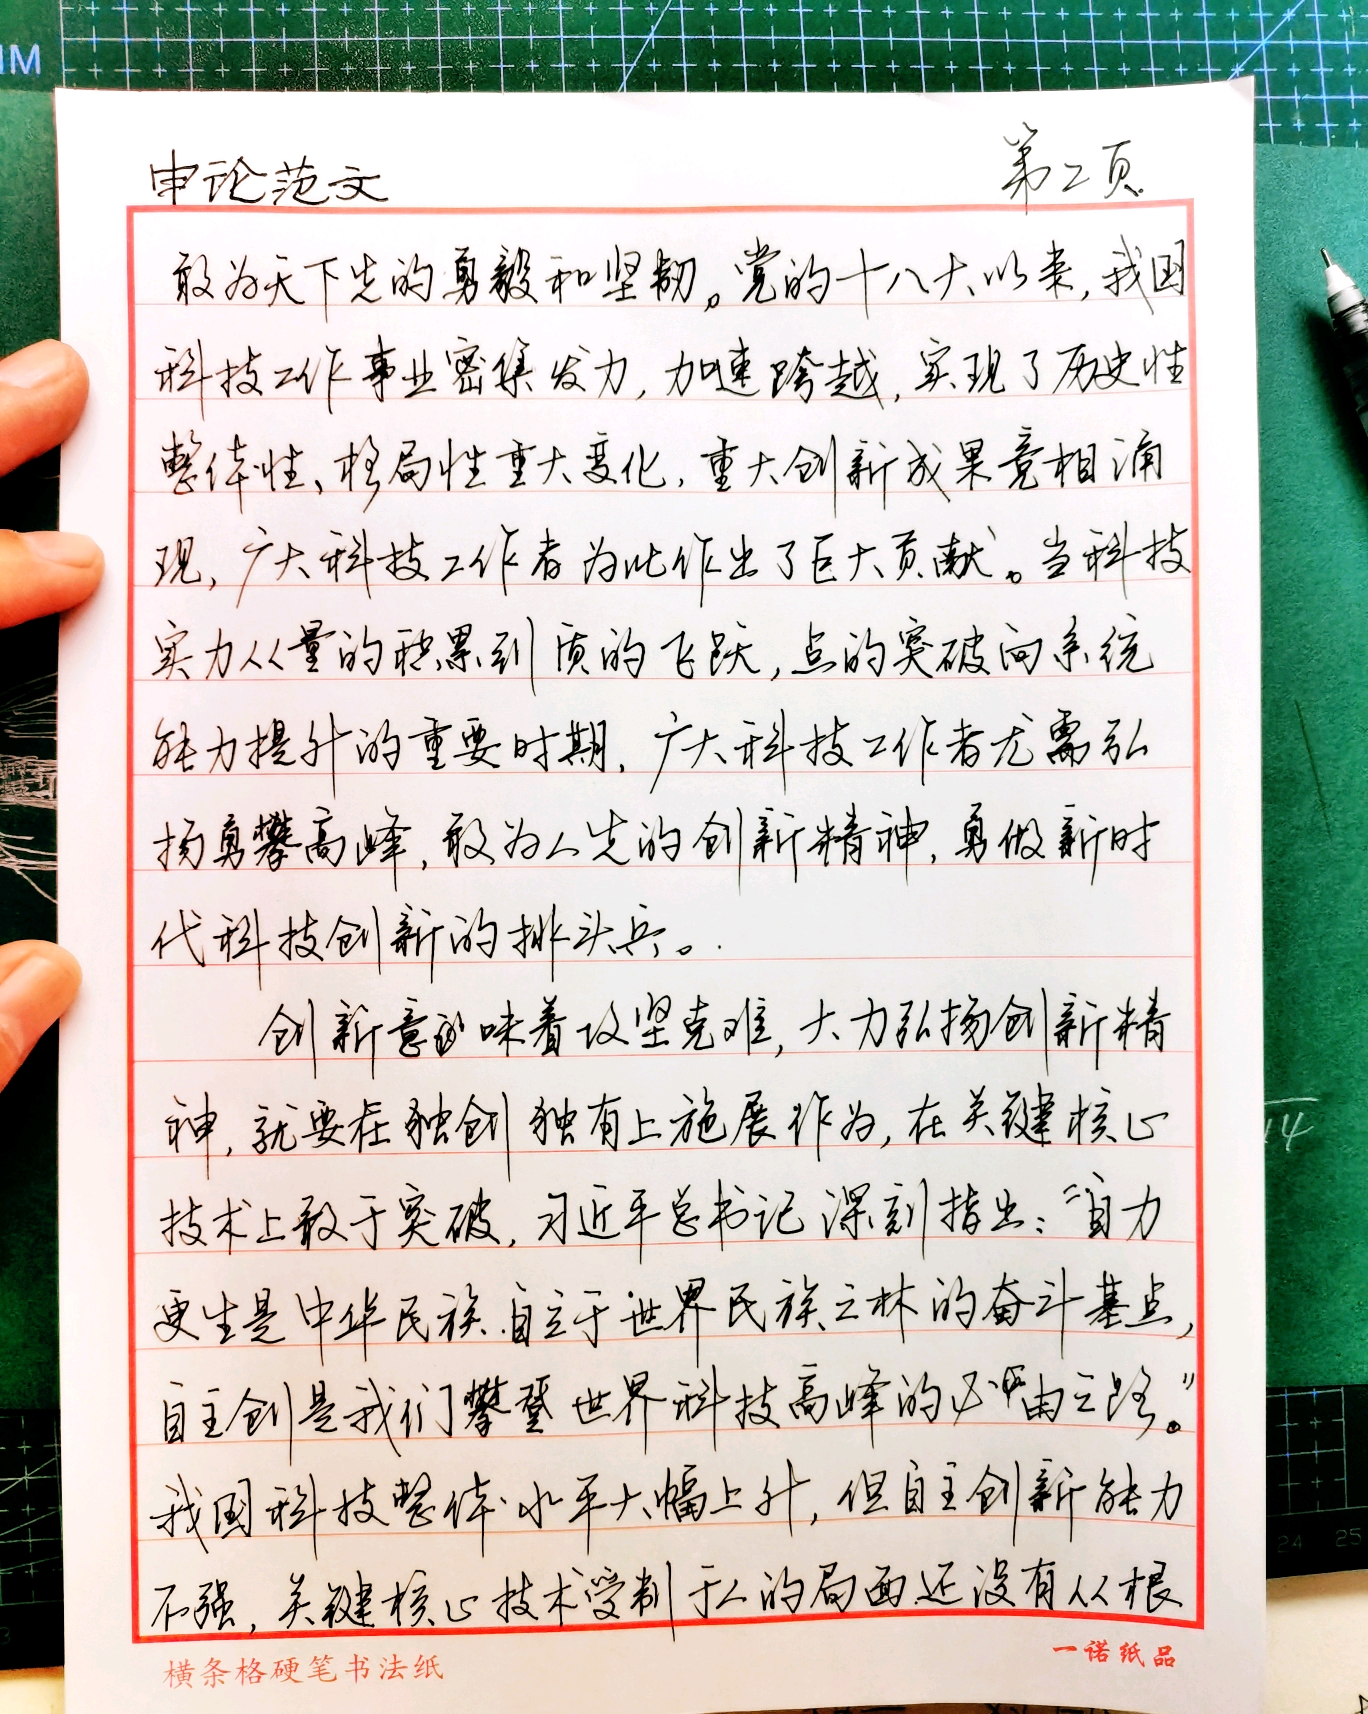 申论范文
第二页
敢为天下先的勇毅和坚韧。党的十八大以来，我国
科技工作事业密集发力，加速跨越，实现了历史性
整体性、格局性重大变化，重大创新成果竞相涌
现，广大科技工作者为此作出了巨大贡献。当科技
实力从量的积累到质的飞跃，点的突破向系统
能力提升的重要时期，广大科技工作者尤需弘
扬勇攀高峰，敢为人先的创新精神，勇做新时
代科技创新的排头兵。
创新意味着攻坚克难，大力弘扬创新精
神，就要在独创独有上施展作为，在关键核心
技术上敢于突破，习近平总书记深刻指出：“自力
更生是中华民族自立于世界民族之林的奋斗基点，
自主创是我们攀登世界科技高峰的必由之路。”
我国科技整体水平大幅上升，但自主创新能力
不强，关键核心技术受制于人的局面还没有从根
横条格硬笔书法纸
一诺纸品
24 25
14